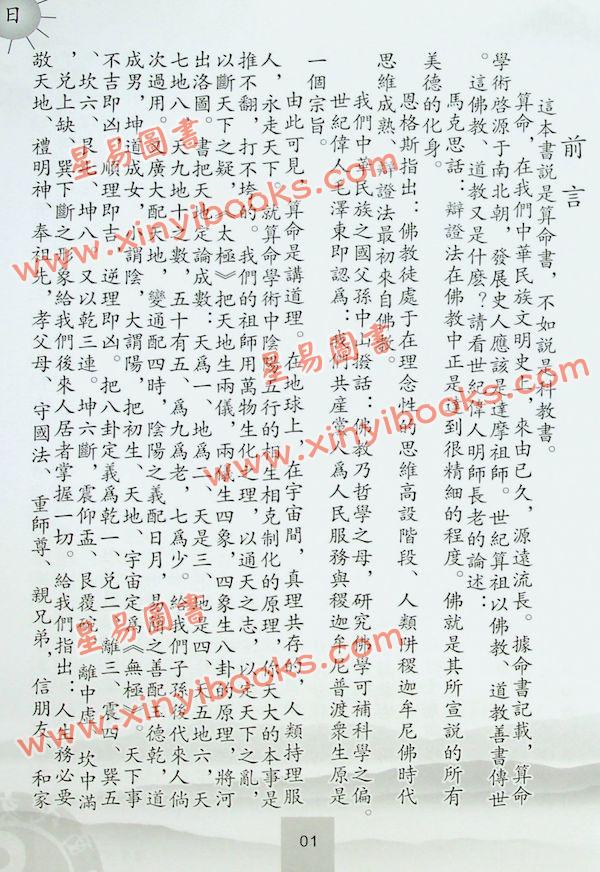 日
前言
這本書說是算命書，不如說是科教書。
算命，在我們中華民族文明史上，來由已久，源遠流長。據命書記載，算命
學術啓源于南北朝，發展史人應該是達摩祖師。世紀算祖以佛教、道教善書傳世
。這佛教、道教又是什麽？請看世紀偉人明師長老的論述：
馬克思話：辯證法在佛教中正是達到很精細的程度。佛就是其所宣說的所有
美德的化身。
恩格斯指出：佛教徒處于在理念性的思維高設階段、人類阱稷迦牟尼佛時代
思維成熟，辯證法最初來自佛教。
我們中華民族之國父孫中山發話：佛教乃哲學之母，研究佛學可補科學之偏。
世紀偉人毛澤東即認爲：我們共産黨人爲人民服務與稷迦牟尼普渡衆生原是
一個宗旨。
由此可見，算命是講道理。在地球上，在宇宙間，真理共存的，人類持理服
人，永走天下，就算命學術中陰陽五行的相生相克制化的原理，你天大的本事是
推不翻，打不垮的。我們的祖師用萬物生化之理，以通天之志，以定天下之亂，
以斷天下之疑，《太極》把天地生兩儀，兩儀生四象，四象生八卦的原理，將河
出洛圖。書把天地定論成數：天爲一、地爲二、天是三、地是四、天五地六，天
七地八，天九地十之數，五十有五、爲九爲老，七爲少。給我們子孫後代來人倘
次過用。又廣大配天地，變通配四時，陰陽之義配日月，易簡之善配至德乾，道
成男，坤道成女，小謂陰，大謂陽，把初生、天地、宇宙定爲《無極》。天下事
不吉即凶，順理即吉，逆理即凶。把八卦定義爲乾一、兌二、離三、震四、巽五
、坎六、艮七、坤八，又以乾三連。坤六斷，震仰盂、艮覆碗，離中虛，坎中滿
，兌上缺，巽下斷之形象給我們後來人居者掌握一切。給我們指出：人生務必要
敬天地、禮明神、奉祖先，孝父母、守國法、重師尊、親兄弟，信朋友、和家
01
星易圖書
www.xinyibooks.com
星易圖書
www.xinyibooks.com
星易圖書
www.xinyibooks.com